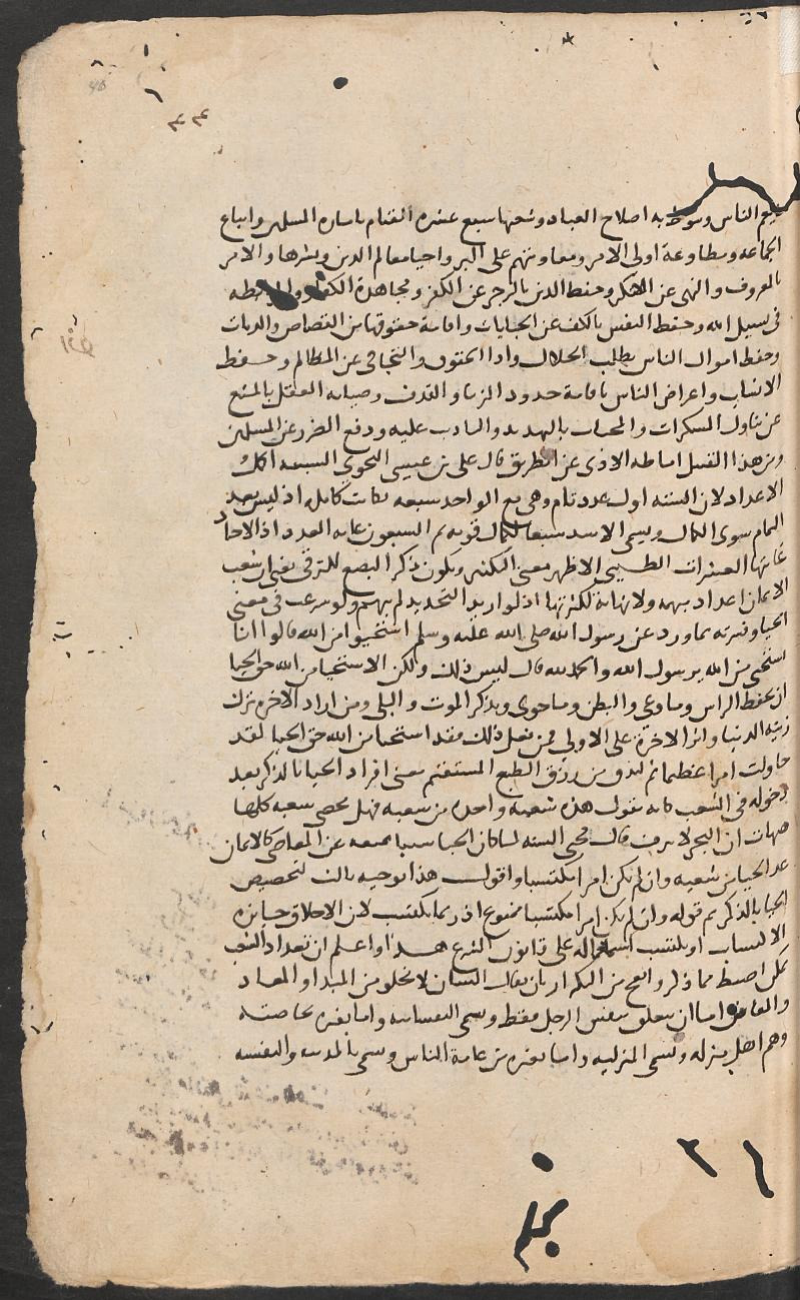 ٤٤
يعم الناس وينوط به اصلاح العباد وشعبها سبع عشرة القيام بامارة المسلمين واتباع
الجماعه ومطاوعة اولى الامر ومعاونتهم على البر واحيا معالم الدين ونشرها والامر
بالمعروف والنهى عن المنكر وحفظ الدين بالزجر عن الكفر ومجاهدة الكفار والمرابطه
فى سبيل الله وحفظ النفس بالكف عن الجنايات واقامة حقوقها من القصاص والديات
وحفظ اموال الناس بطلب الحلال وادا الحقوق والتجافى عن المظالم وحفظ
الانساب واعراض الناس باقامة حدود الزنا والقذف وصيانه العقل بالمنع
عن تناول المسكرات والمجنات بالتهديد والتاديب عليه ودفع الضرر عن المسلمين
ومن هذا القبيل اماطه الاذى عن الطريق قال على بن عيسى النحوى السبعه اكمل
الاعداد لان السته اول عدد تام وهى مع الواحد سبعه فكانت كامله اذ ليس بعد
التمام سوى الكمال وسمى الاسد سبعا لكمال قوته ثم السبعون غايه العدد اذ الاحاد
غايتها العشرات الطيبى الاظهر معنى الكثير ويكون ذكر البضع للترقى يعنى ان شعب
الايمان اعداد مبهمه ولا نهاية لكثرتها اذ لو اريد التحديد لم يبهم ولو شرعت فى معنى
الحيا وفسرته بما ورد عن رسول الله صلى الله عليه وسلم استحيوا من الله قالوا انا
نستحى من الله يرسول الله والحمد لله قال ليس ذلك ولكن الاستحيا من الله حق الحيا
ان يحفظ الراس وما وعى والبطن وما حوى ويذكر الموت والبلى ومن اراد الاخره ترك
زينه الدنيا واثر الاخرة على الاولى فمن فعل ذلك فقد استحيا من الله حق الحيا لقد
حاولت امرا عظيما ثم لتذوق من رزق الطبع المستقيم معنى افراد الحيا بالذكر بعد
دخوله فى الشعب كانه يقول هذه شعبه واحده من شعبه فهل يحصى شعبه كلها
هيهات ان البحر لا يغرف قال محيى السنه لما كان الحيا سببا يمنعه عن المعاصى كالايمان
عد الحيا من شعبه وان لم يكن امرا مكتسبا واقول هذا توجيه ثالث لتخصيص
الحيا بالذكر ثم قوله وان لم يكن امرا مكتسبا ممنوع اذ ربما يكتسب لان الاخلاق جايزه
الاكتساب او يكتسب استعماله على قانون الشرع هذا واعلم ان تعداد الشعب
يمكن اضبط مما ذكر واوضح من التكرار بان يقال الانسان لا يخلو من المبدا والمعاد
والمعاش اما ان يتعلق بنفس الرجل فقط ويسمى النفسانيه واما بغيره خاصته
وهم اهل منزله وتسمى المنزليه واما بغيره من عامة الناس وتسمى المدنيه والنفسيه